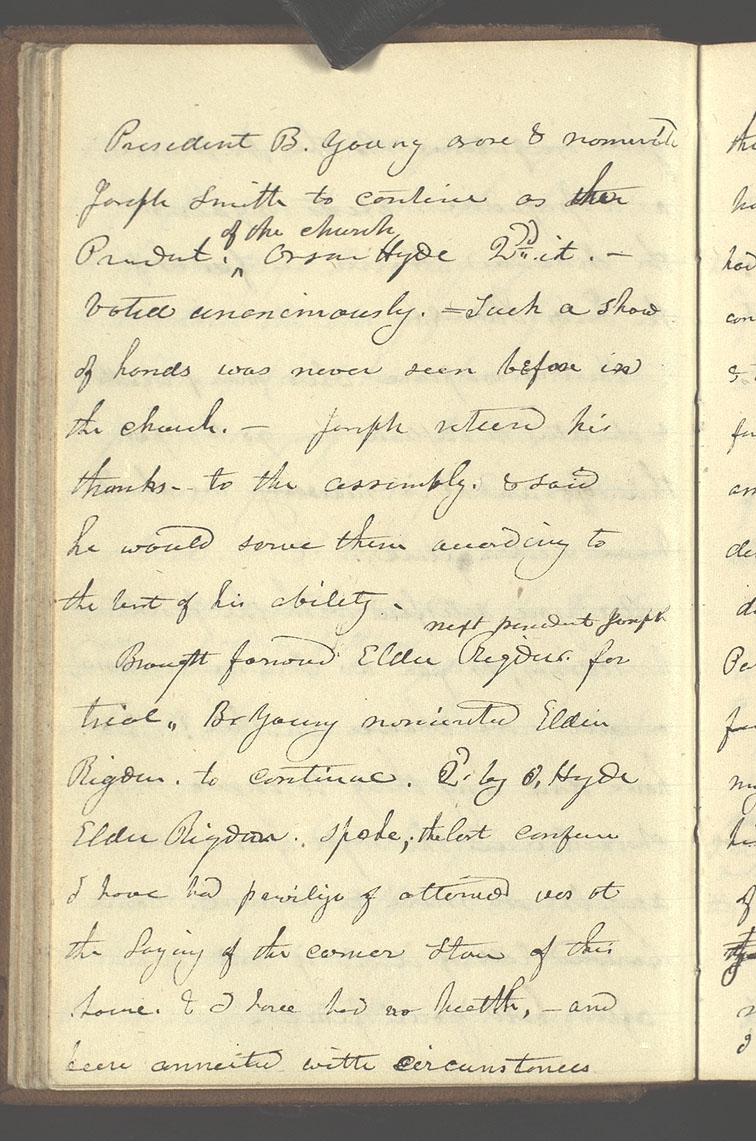 President B. Young arose & nominated
Joseph Smith to continue as
President of the church Orson Hyde 2nd it. —
Voted unanimously. = Such a show
of hands was never seen before in
the church. — Joseph returned his
thanks — to the assembly. & said
he would serve them according to
the best of his ability —
next president Joseph
Brought forward Elder Rigdon for
trial,, Br Young nominated Elder
Rigdon. to continue. 2d. by O, Hyde
Elder Rigdon. spoke; the last conference
I have had privilige of attened was at
the Laying of the corner Stone of this
house. & I have had no health, — and
been connected with circumstances